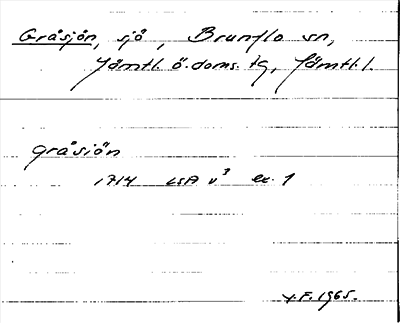 Gråsjön, sjö, Brunflo sn,
Jämtl. ö. doms. tg, Jämtl. l.
gråsiön
1714 LSA v³ ex. 1
Y.F. 1965.